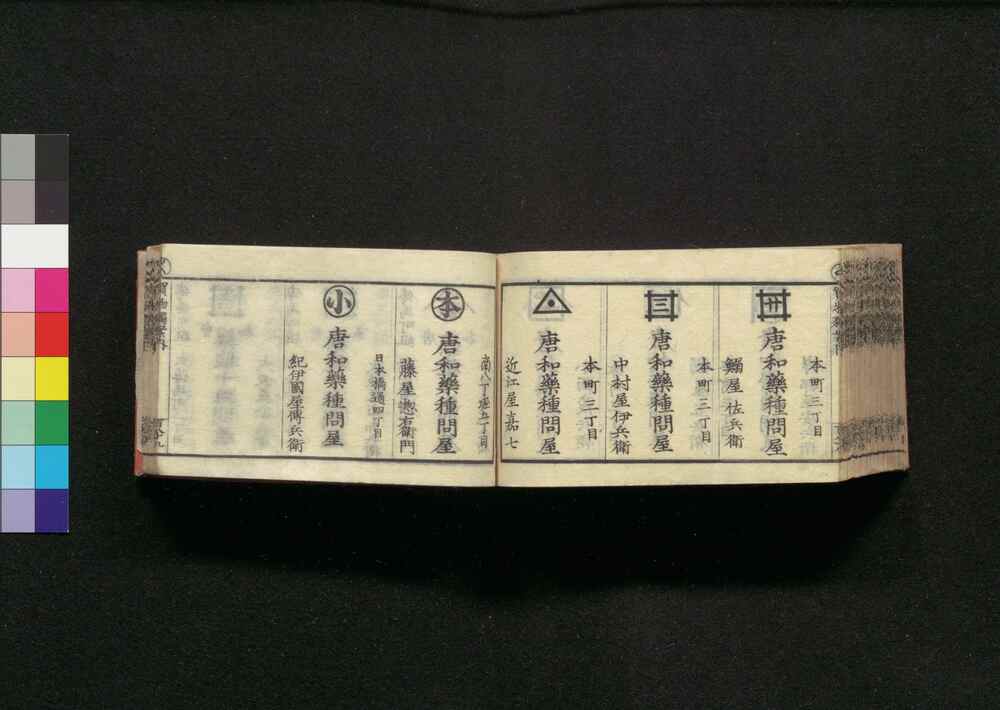 本町三丁目
唐和藥種問屋
鰯屋佐兵衛
本町三丁目
三
唐和藥種問屋
中村屋伊兵衛
本町三丁目
唐和藥種問屋
近江屋嘉七
南八丁堀五丁目
本
唐和藥種問屋
藤屋惣右衛門
日本橋通四丁目
小
唐和藥種問屋
紀伊國屋傳兵衛